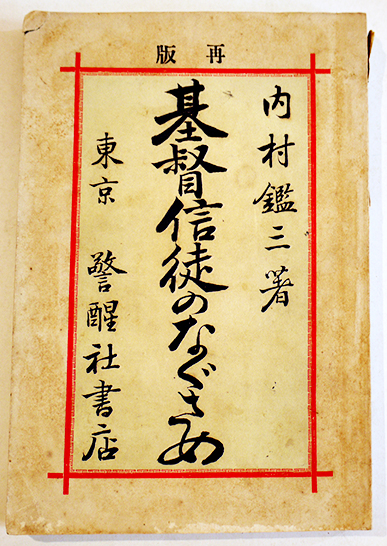 再版
内村鑑三著
基督信徒のなぐさめ
東京 警醒社書店